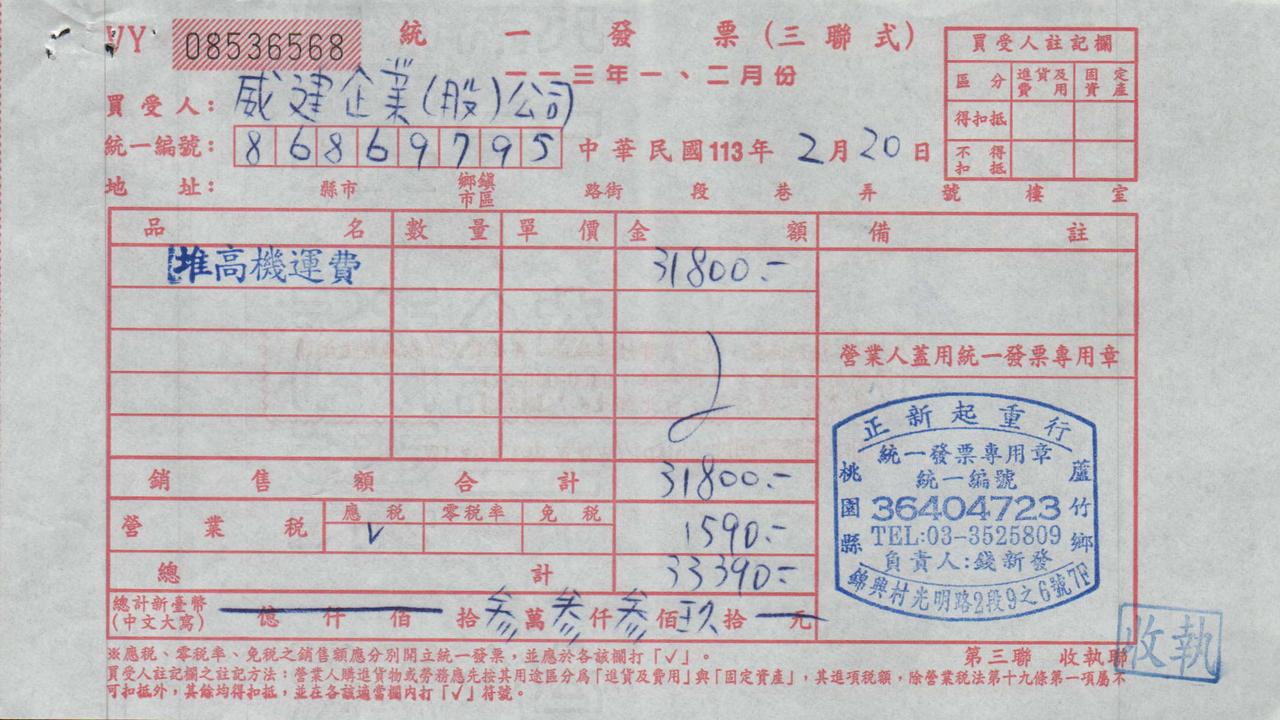 VY 08536568 統一發票(三聯式)
一一三年一、二月份
買受人: 威建企業(股)公司
統一編號: 86869795 中華民國113年2月20日
地址: 縣市 鄉鎮市區 路街 段 巷 弄 號 樓 室
買受人註記欄
區分 進貨及費用 固定資產
得扣抵
不得扣抵
品名 數量 單價 金額 備註
堆高機運費 31800.-
營業人蓋用統一發票專用章
銷售額合計 31800.-
營業稅 應稅 零稅率 免稅 1590.-
V
總計 33390.-
總計新臺幣(中文大寫) 億仟佰拾叁萬叁仟叁佰玖拾元
正新起重行
統一發票專用章
統一編號
36404723
TEL:03-3525809
負責人:錢新發
桃園縣蘆竹鄉
錦興村光明路2段9之6號7F
※應稅、零稅率、免稅之銷售額應分別開立統一發票,並應於各該欄打「✓」。
第三聯 收執聯
收執
買受人註記欄之註記方法:營業人購進貨物或勞務應先按其用途區分為「進貨及費用」與「固定資產」,其進項稅額,除營業稅法第十九條第一項屬不
可扣抵外,其餘均得扣抵,並在各該適當欄內打「✓」符號。